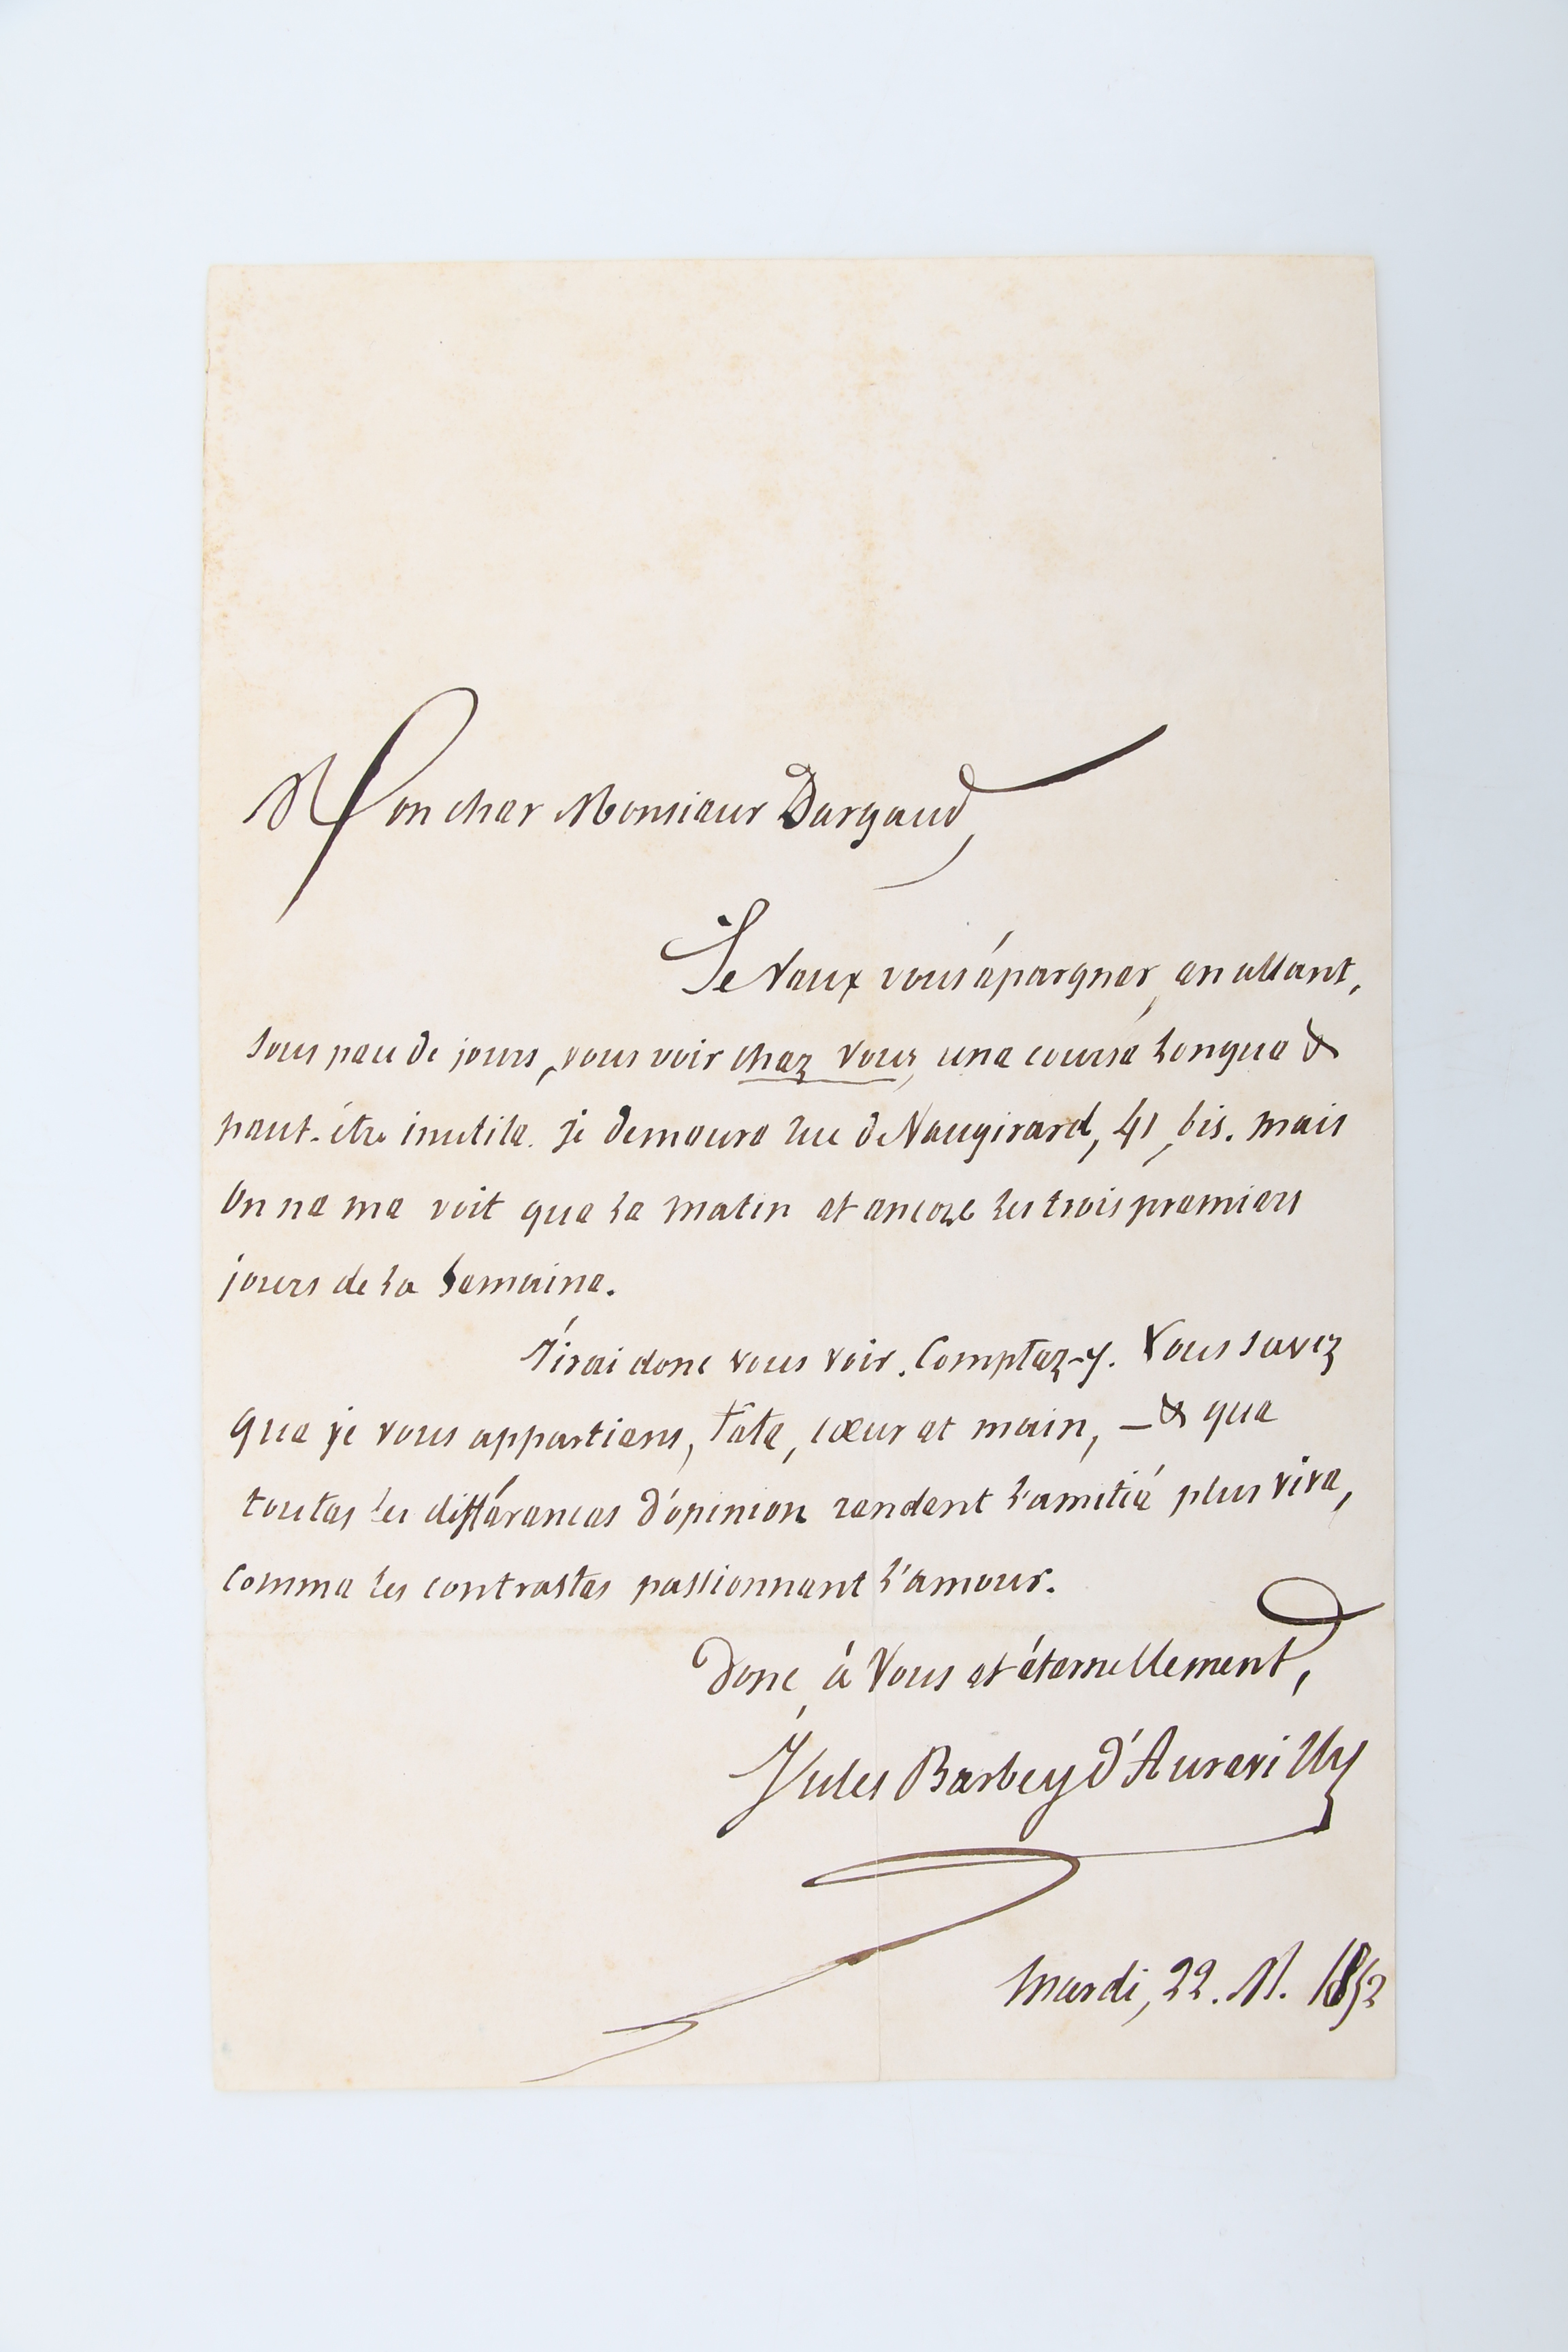 Mon cher Monsieur Dargaud,
Je veux vous épargner, en allant,
sous peu de jours, vous voir chez vous, une course longue &
peut-être inutile. Je demeure rue de Vaugirard, 41, bis. mais
on ne me voit que le matin et encore les trois premiers
jours de la semaine.
J'irai donc vous voir. Comptez-y. Vous savez
que je vous appartiens, tête, cœur et main, — & que
toutes les différences d'opinion rendent l'amitié plus vive,
comme les contrastes passionnent l'amour.
Donc à vous et éternellement,
Jules Barbey d'Aurevilly
Mardi, 22. M. 1852